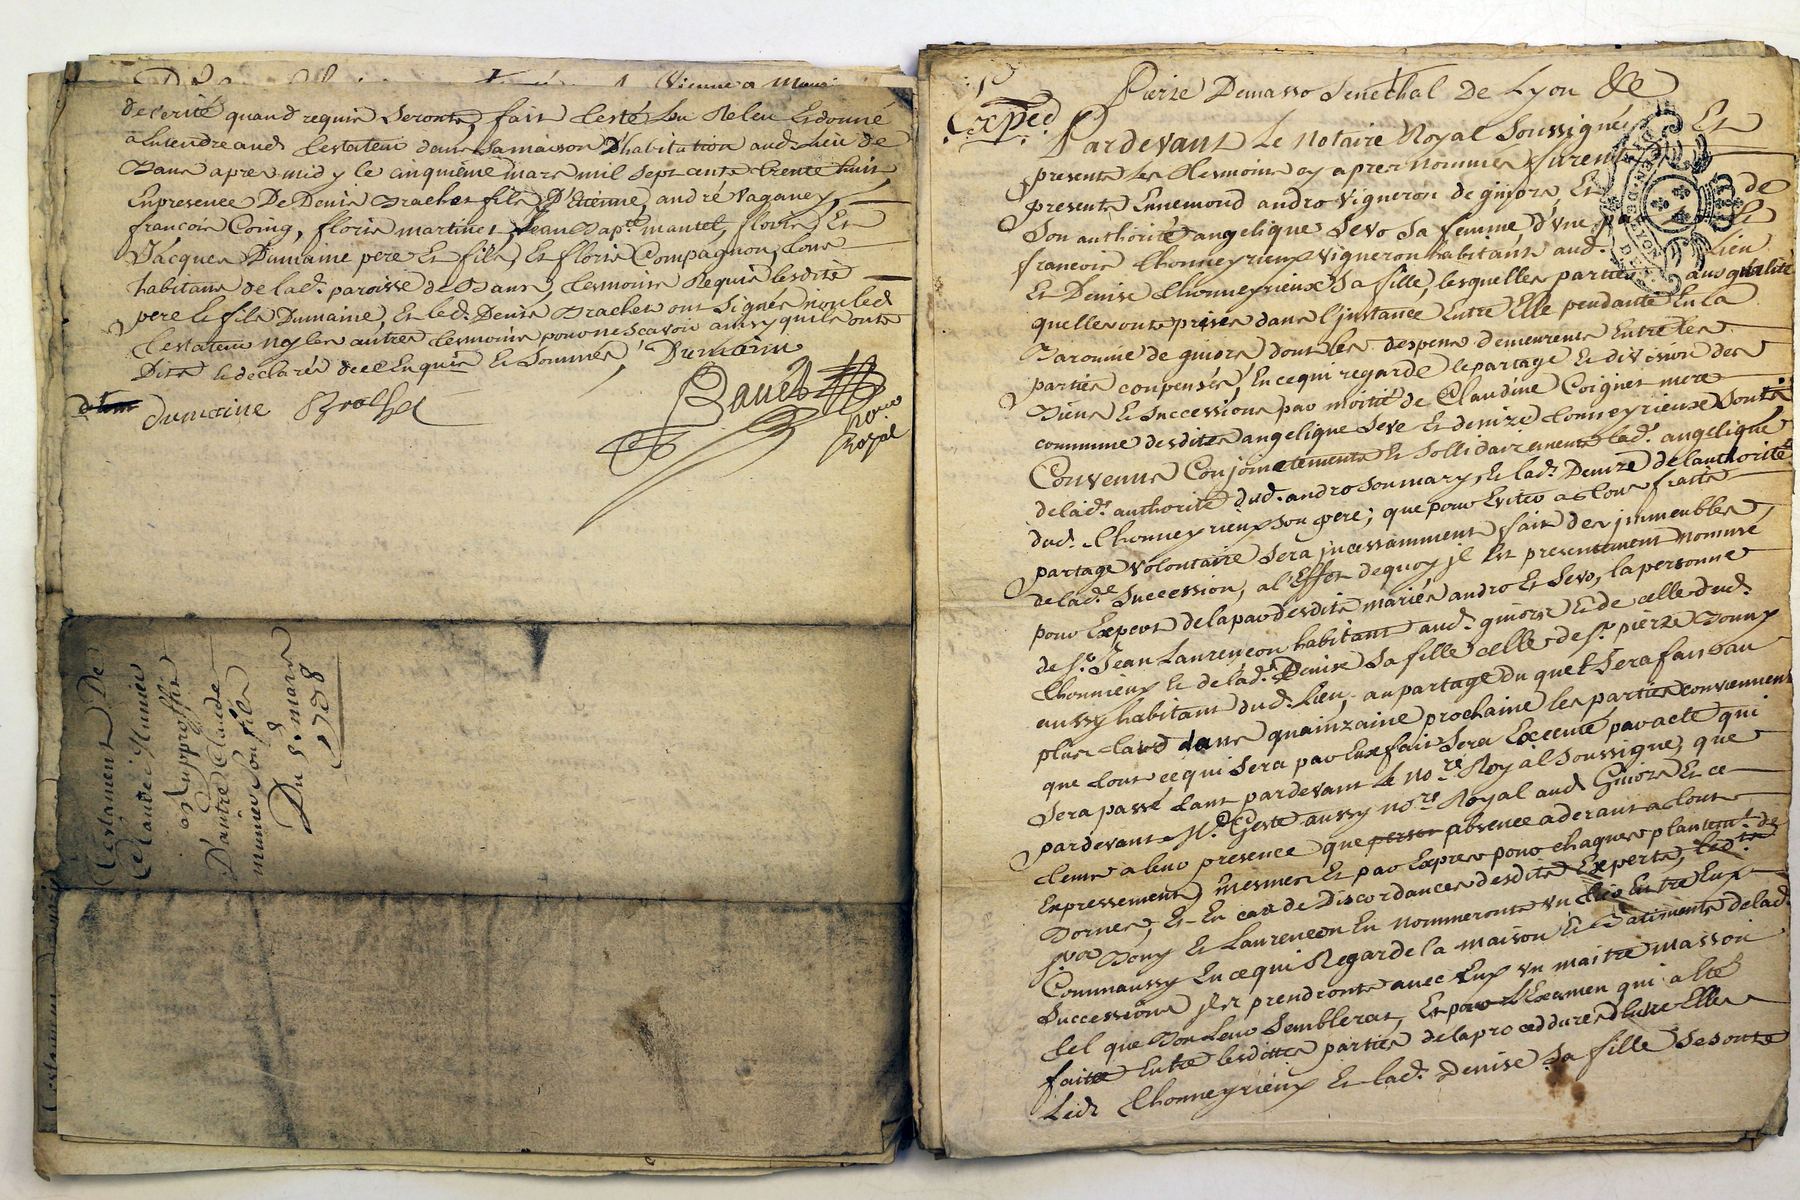 de verité quand requis seronts, fait lesté leu Releu Et donné
a entendre aud. testateur dans sa maison D'habitation aud. lieu de
Bans apres midy le cinquième mars mil sept cents trente huit
En presence De Denis Brachet fils D'Etienne, andré Vaganey,
francois Coing, floris martinet, Jean Bapt. mantel, floris, Et
Jacques Dumaine pere Et fils, Et floris Compagnon, tous
habitans de lad. paroisse de Bans, temoins Requis lesdits
pere le fils Dumaine, Et led. Denis Brachet ont signés non led.
testateur ny les autres temoins pour ne scavoir ainsy qu'ils onts
Dits le déclarés de ce Enquis Et sommés, Dumaine
dumaine Brachet
Bauet
no.re
Royal
Testament De
Claude Munier
au proffit
D'autre Claude
munier son fils
Du 5e mars
1738
Pierre Demasso Senechal De Lyon &c
Exped
Pardevant Le Notaire Royal Soussigné, Et
presents les Temoins cy apres nommés furent
presents Ennemond andro vigneron de givors, Et de
son authorité angelique Seve sa femme d'vne
francois Thonneyrieux vigneron habitant aud. Lien
Et Denise Thonneyrieux sa fille, lesquelles parties aux qualités
quelles onts prises dans l'instance Entre Elle pendante En la
Baronnie de givors dont les despens demeurents Entre les
parties conpensés, En ce qui regarde le partage Et division des
Biens Et Successions par moitié de Claudine Coignet mere
commune desdites angelique Seve Et denize Thonneyrieux sonts
Convenus Conjoinctements Et Sollidairements lad. angelique
de lad. authorité dud. andro son mary, Et lad. Denize de l'authorité
dud. Thonneyrieux son pere; que pour Eviter a tous fraits
partage volontaire sera incessamment fait des jmmeubles
de lad.e Succession, a l'Effet de quoy jl Est presentement nommé
pour Expert de la part desdits mariés andro Et Seve, la personne
de sr. Jean Laurençon habitant aud. givors Et de celle dud.
Thonnieux Et de lad. Denise sa fille celle de sr. pierre Bouny
aussy habitant dud. Lieu; au partage du quel sera fait au
plus tard dans quainzaine prochaine les parties conviennent
que tout ce qui sera par Eux fait sera Execuné par acte qui
sera passé tant pardevant le no.re Royal soussigné, que
pardevant Me. Geste aussy no.re Royal aud. Givors Et ce
tems a leur presence que absence aderant a tout
Expressements, mesmes Et par Expres pour chaques plantent de
Bornes, Et En cas de Discordances desdits Experts,
srs. Bouy Et Laurencon En nommeronts vn Entre Eux
Comm'aussy En ce qui Regarde la maison Et Batiments de lad.
Succession jls prendronts avec Eux vn maitre masson
tel que Bon leur semblerat, Et par L'Examen qui a Eté
faitte Entre lesdittes parties de la procedures d'Entre Elles
Ledt Thonneyrieux Et lad. Denise sa fille se sonts